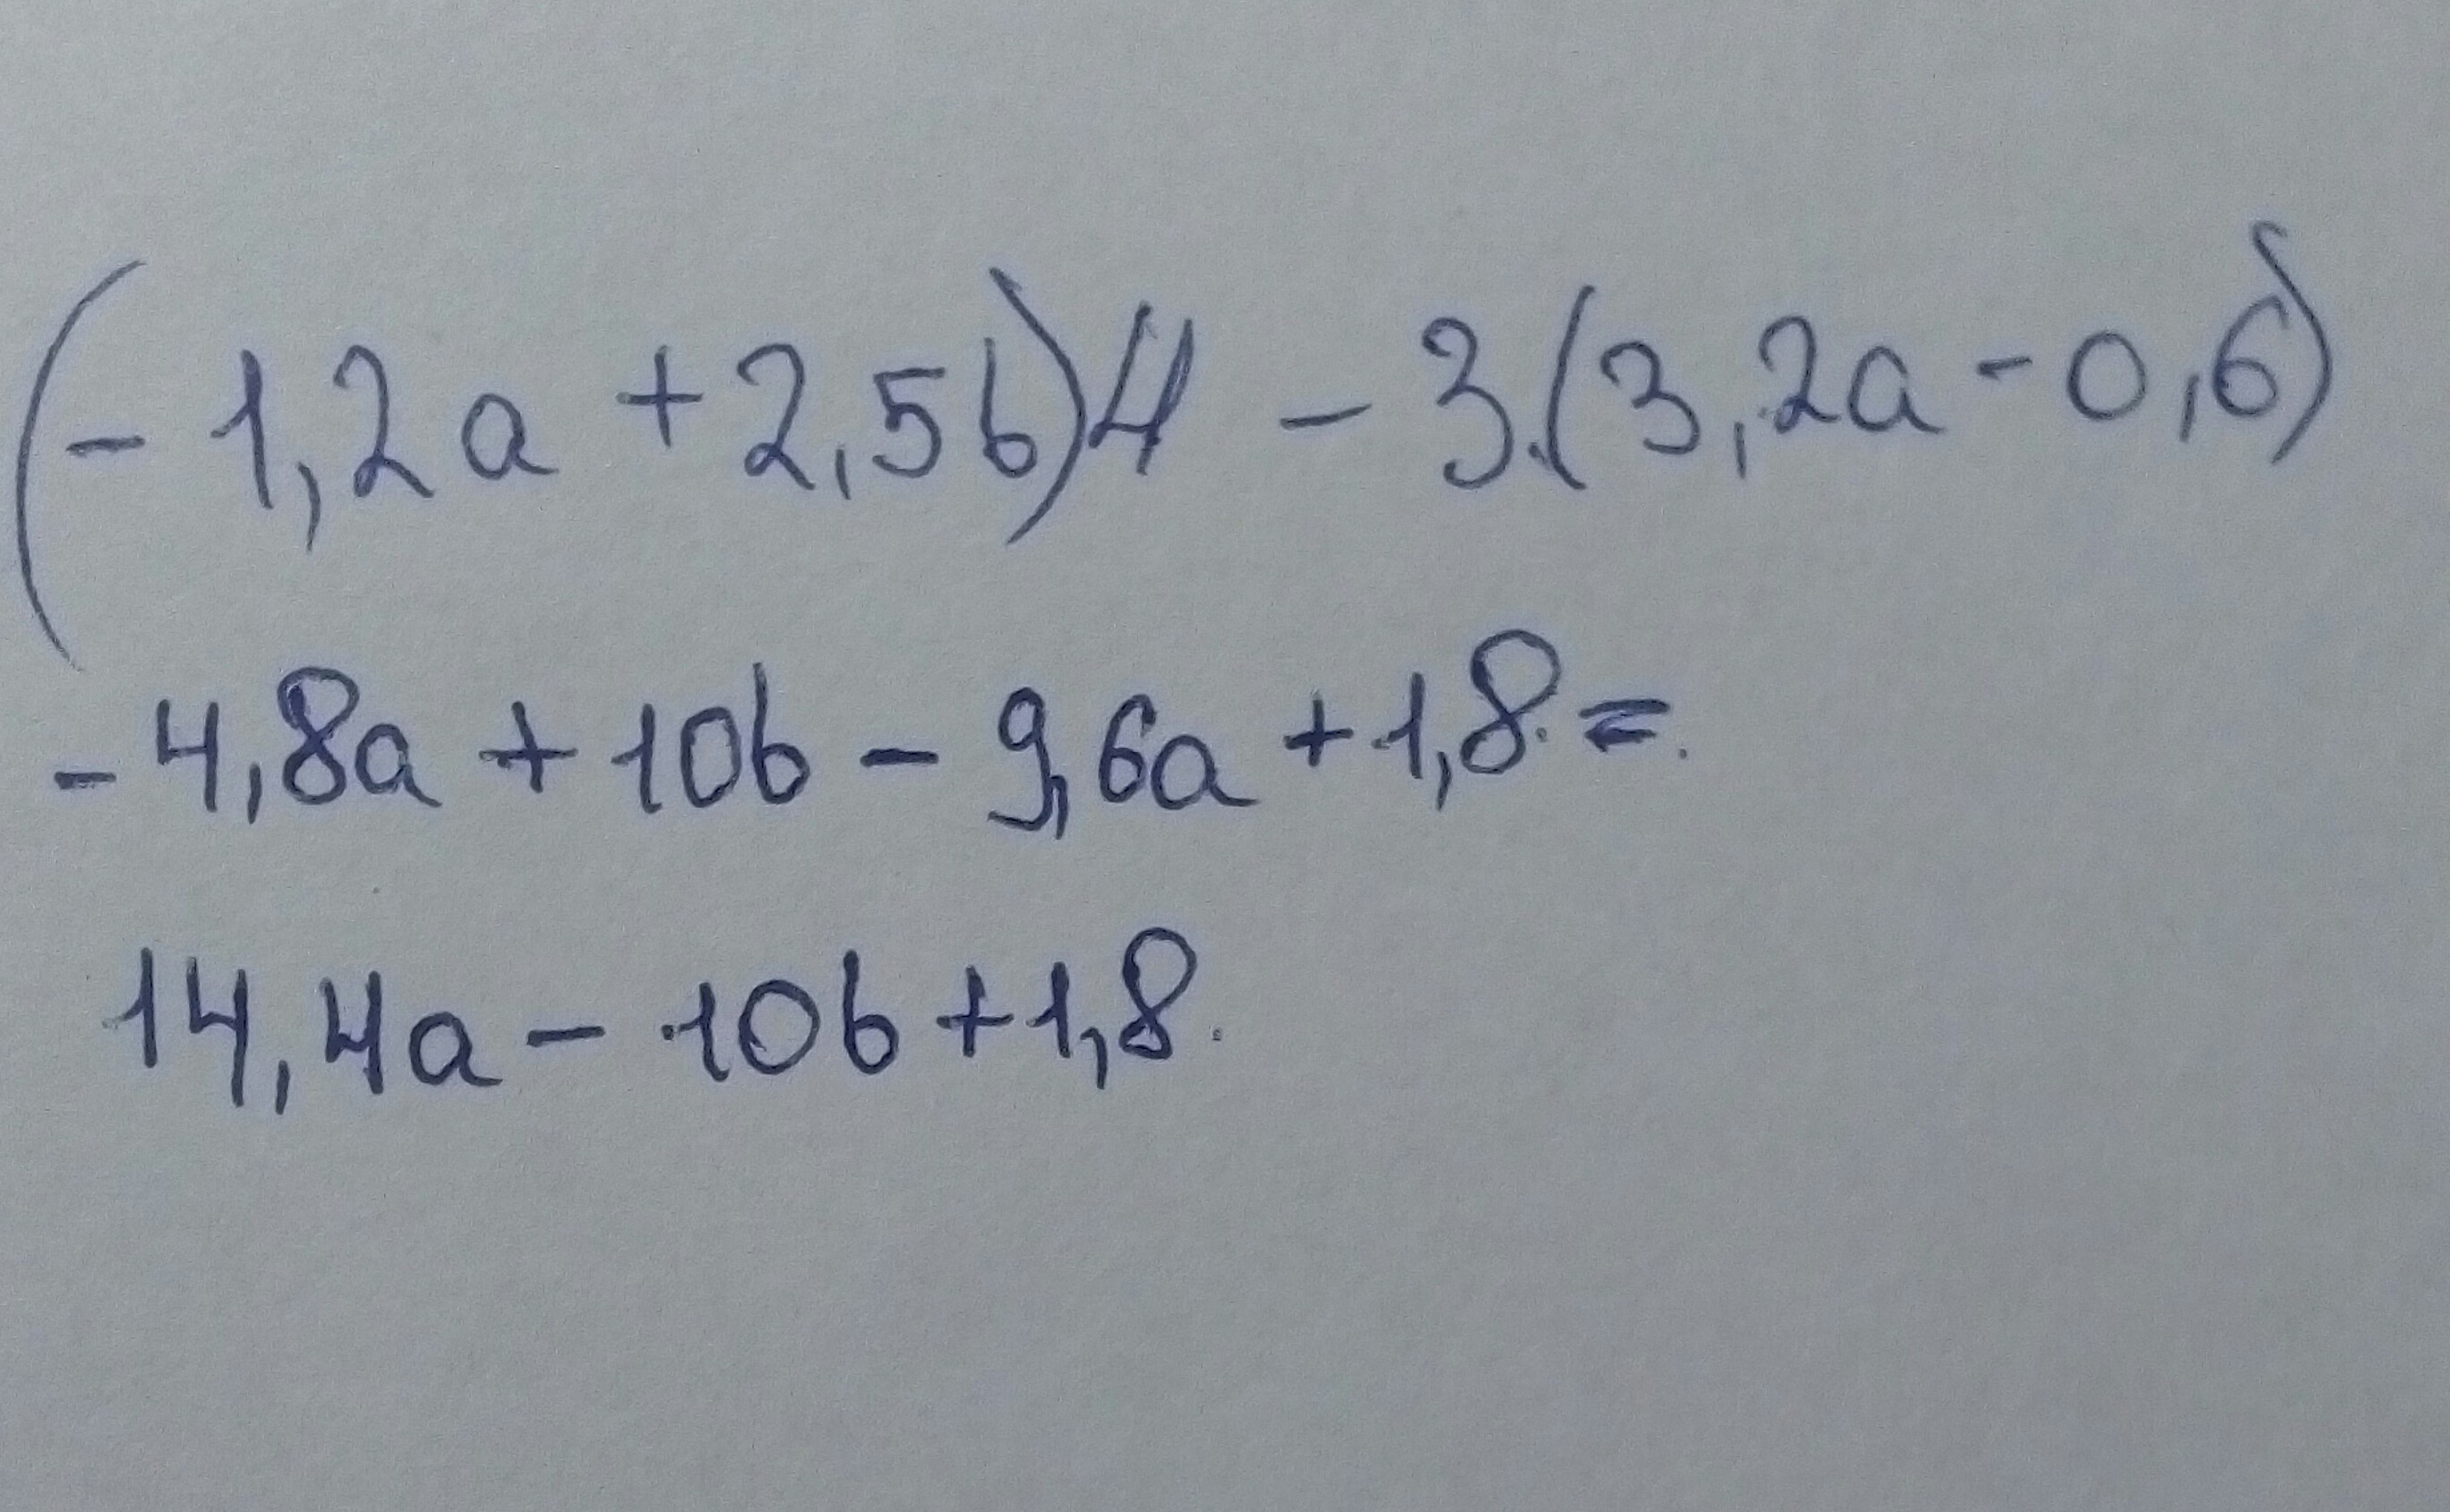 (-1,2a+2,5b)4-3·(3,2a-0,6)
-4,8a+10b-9,6a+1,8=
14,4a-10b+1,8.